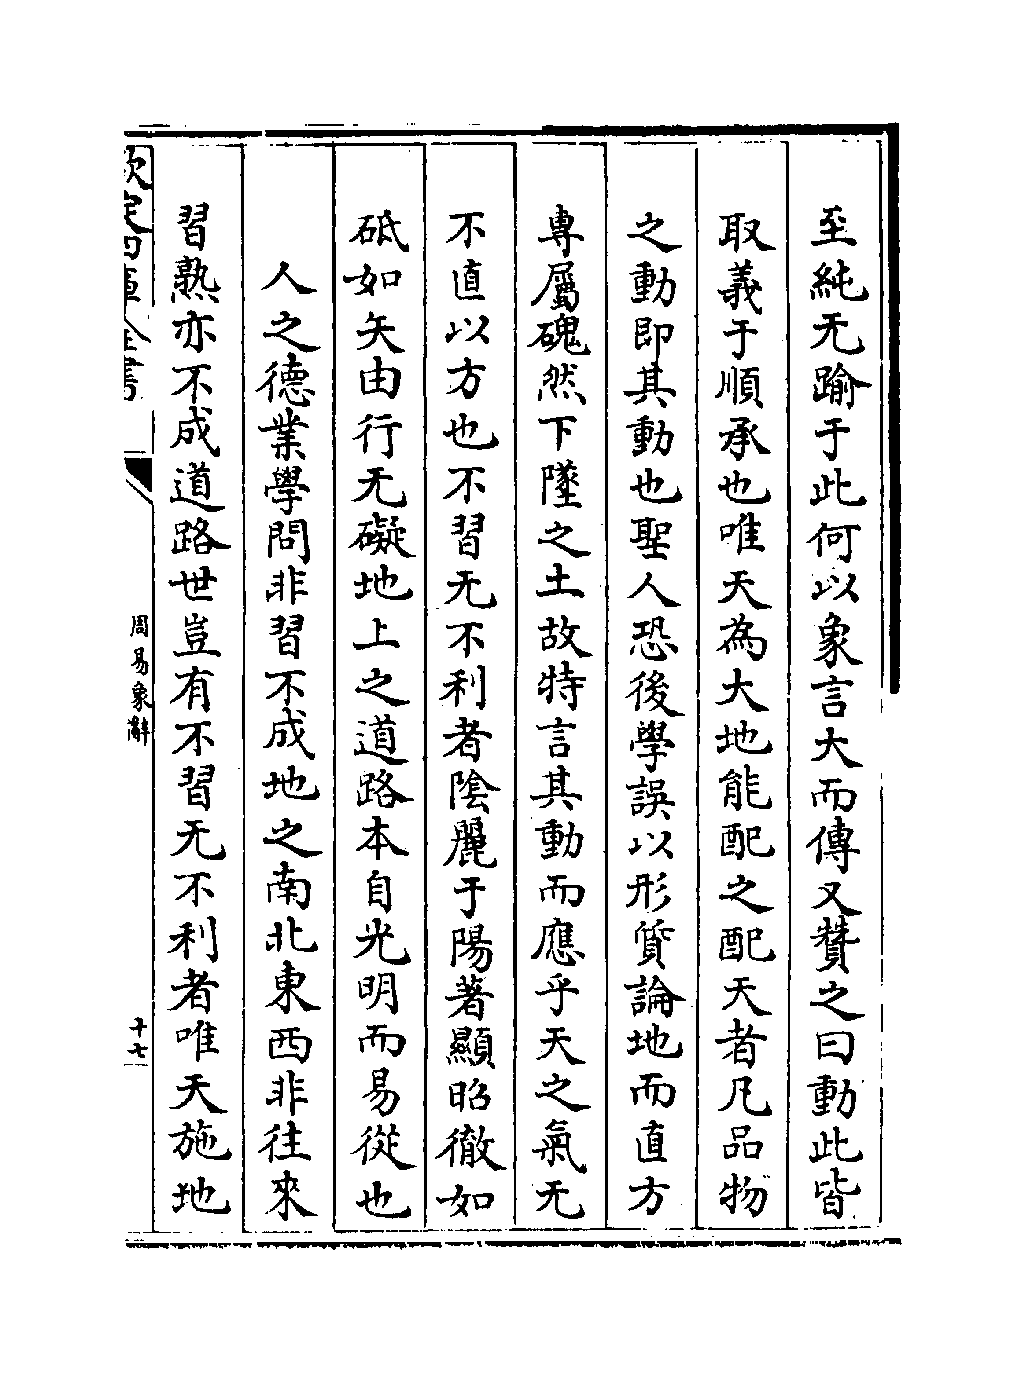 至純无踰于此何以象言大而傳又贊之曰動此皆
取義于順承也唯天為大地能配之配天者凡品物
之動即其動也聖人恐後學誤以形質論地而直方
專屬磈然下墜之土故特言其動而應乎天之氣无
不直以方也不習无不利者陰麗于陽著顯昭徹如
砥如矢由行无礙地上之道路本自光明而易從也
人之德業學問非習不成地之南北東西非往來
習熟亦不成道路世豈有不習无不利者唯天施地
欽定四庫全書
周易象辭
十七